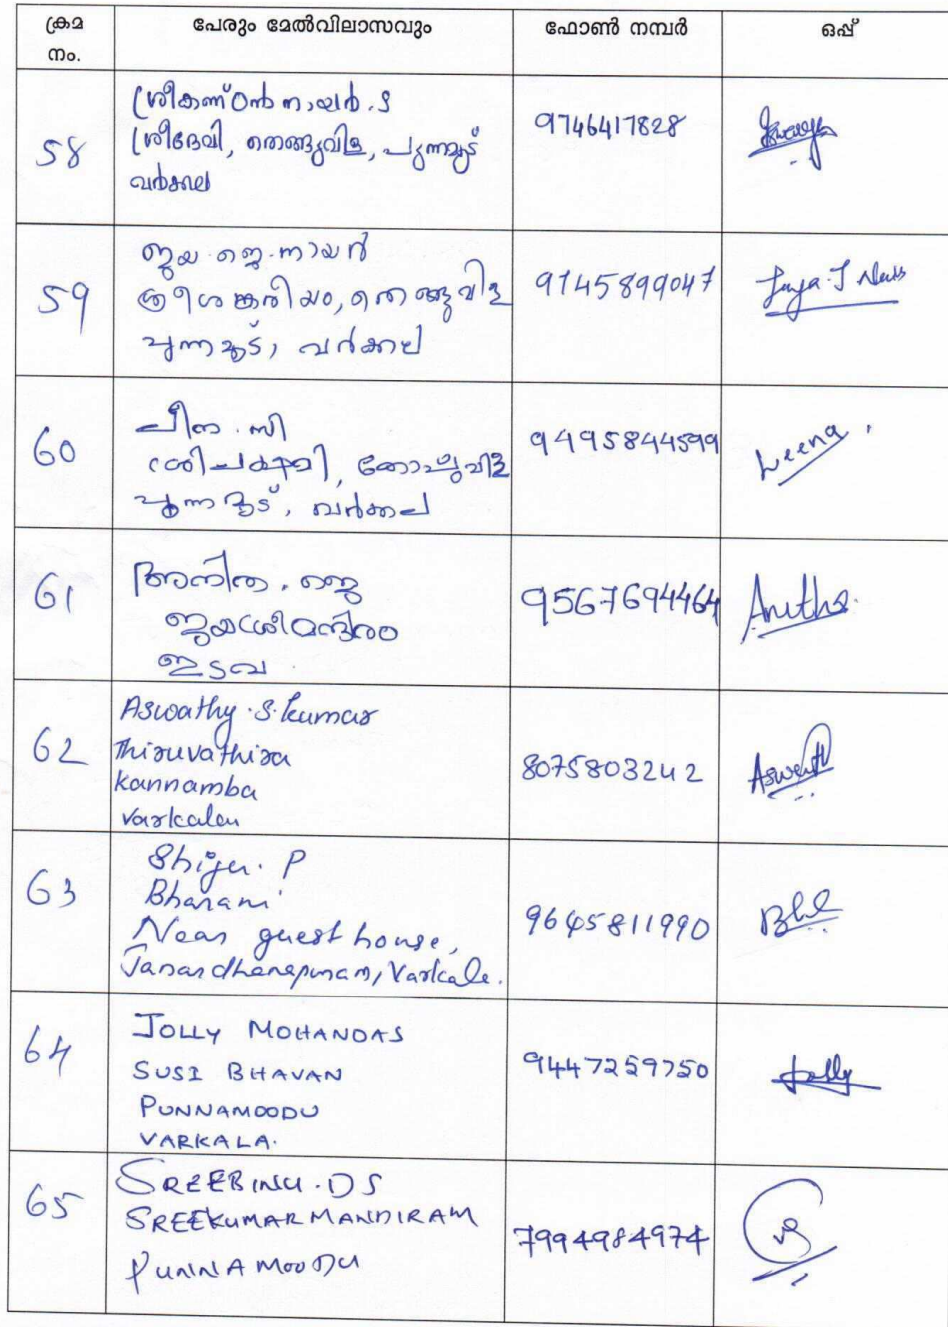 ക്രമ നം. പേരും മേൽവിലാസവും ഫോൺ നമ്പർ ഒപ്പ്
58
ശ്രീകണ്ഠൻ നായർ . S
ശ്രീദേവി, തെങ്ങുവിള, പുന്നമൂട്
വർക്കല
9746417828
59
ജയ . ജെ . നായർ
ശ്രീശങ്കരീയം, തെങ്ങുവിള
പുന്നമൂട്, വർക്കല
9745899047
Jaya. J
60
ലീന . സി
പുന്നമൂട്, വർക്കല
9495844599
Leena
61
അനിത . ജെ
ജയശ്രീമന്ദിരം
ഇടവ
9567694464
Anitha
62
Aswathy . S. Kumar
Thiruvathira
Kannamba
Varkala
8075803242
Aswath
63
Shiju. P
Bharani
Near guest house,
Janardhanapuram, Varkala.
9645811990
64
JOLLY MOHANDAS
SUSI BHAVAN
PUNNAMOODU
VARKALA.
9447259750
Jolly
65
SREEBINU . D S
SREEKUMAR MANDIRAM
PUNNAMOODU
7994984974